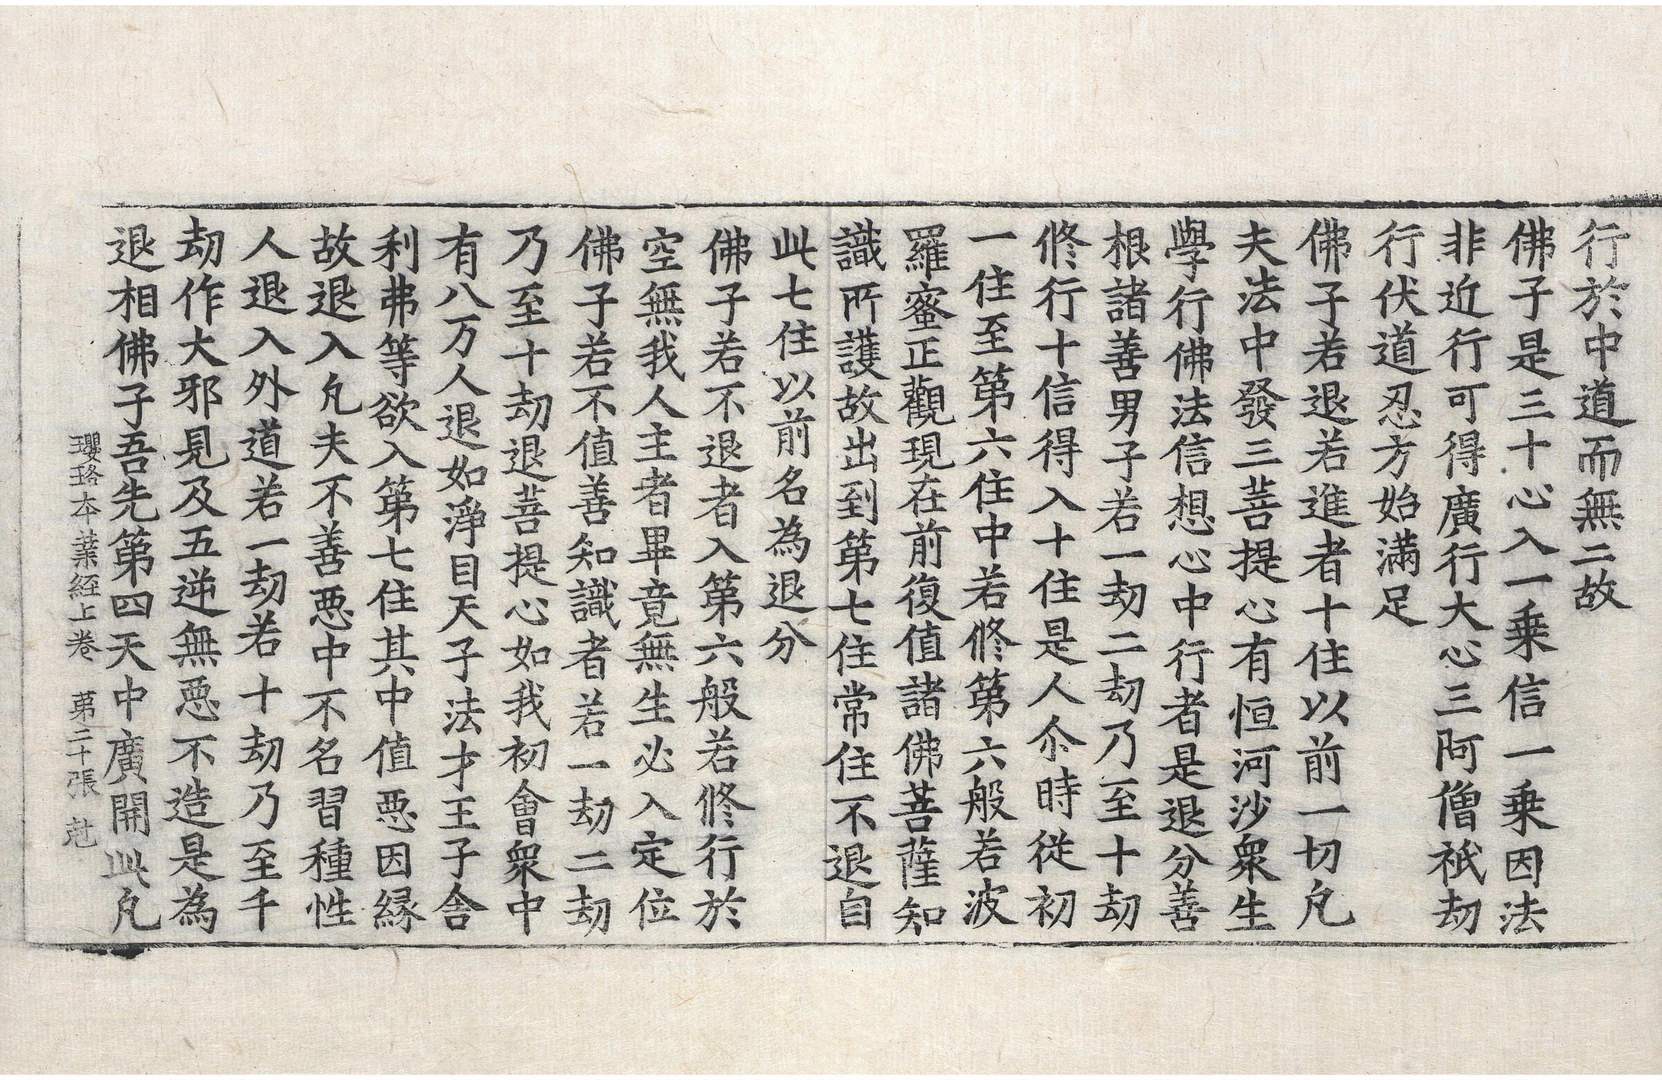 行於中道而無二故
佛子是三十心入一乗信一乗因法
非近行可得廣行大心三阿僧祇劫
行伏道忍方始滿足
佛子若退若進者十住以前一切凢
夫法中發三菩提心有恒河沙衆生
學行佛法信想心中行者是退分善
根諸善男子若一劫二劫乃至十劫
修行十信得入十住是人尒時従初
一住至第六住中若修第六般若波
羅蜜正觀現在前復值諸佛菩薩知
識所護故出到第七住常住不退自
此七住以前名為退分
佛子若不退者入第六般若修行於
空無我人主者畢竟無生必入定位
佛子若不值善知識者若一劫二劫
乃至十劫退退菩提心如我初會衆中
有八万人退如淨目天子法才王子舎
利弗等欲入第七住其中值惡因縁
故退入凢夫不善惡中不名習種性
人退入外道若一劫若十劫乃至千
劫作大邪見及五逆無惡不造是為
退相佛子吾先第四天中廣開此凢
瓔珞本業經上卷 第二十張 尅